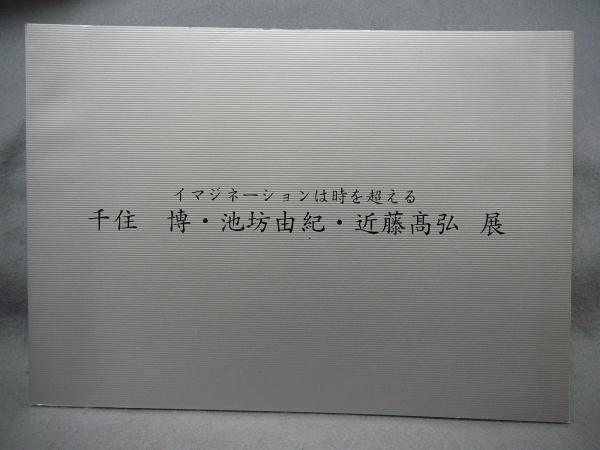 イマジネーションは時を超える
千住　博・池坊由紀・近藤髙弘　展